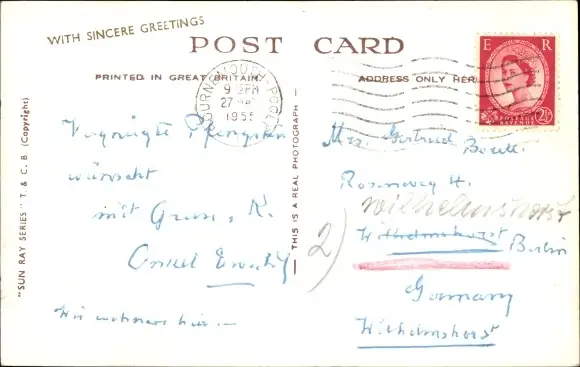 WITH SINCERE GREETINGS
POST CARD
PRINTED IN GREAT BRITAIN
ADDRESS ONLY HERE
BOURNEMOUTH-POOLE
9 PM
27
1955
E R
POSTAGE
REVENUE
2½
"SUN RAY SERIES" T. & C. B (Copyright)
THIS IS A REAL PHOTOGRAPH
Vergnügte Pfingsten
wünscht
mit Gruss, K.
Onkel
Wir hier.
Mrs. Gertrud
Rosenweg 4.
Wilhelmshorst
2)
Wilhelmshorst Berlin
Germany
Wilhelmshorst